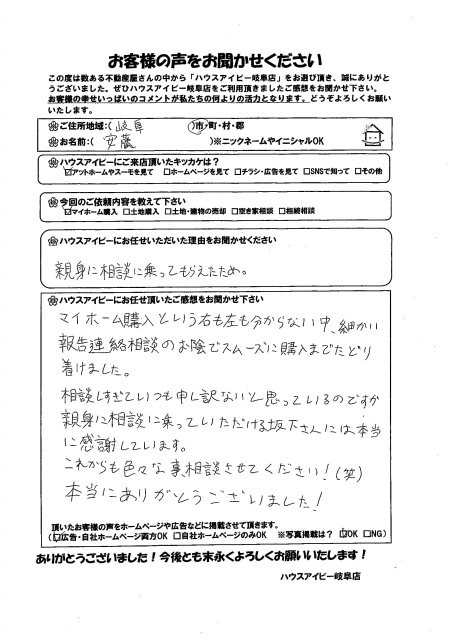 お客様の声をお聞かせください
この度は数ある不動産屋さんの中から「ハウスアイビー岐阜店」をお選び頂き、誠にありがと
うございました。ぜひハウスアイビー岐阜店をご利用頂きましたご感想をお聞かせ下さい。
お客様の幸せいっぱいのコメントが私たちの何よりの活力となります。どうぞよろしくお願い
いたします。
ご住所地域:( 岐阜 )市・町・村・郡
お名前:( 安藤 )※ニックネームやイニシャルOK
ハウスアイビーにご来店頂いたキッカケは?
☑アットホームやスーモを見て □ホームページを見て □チラシ・広告を見て □SNSで知って □その他
今回のご依頼内容を教えて下さい
☑マイホーム購入 □土地購入 □土地・建物の売却 □空き家相談 □相続相談
ハウスアイビーにお任せいただいた理由をお聞かせください
親身に相談に乗ってもらえたため。
ハウスアイビーにお任せ頂いたご感想をお聞かせ下さい
マイホーム購入という右も左も分からない中、細かい
報告連絡相談のお陰でスムーズに購入までたどり
着けました。
相談しすぎていつも申し訳ないと思っているのですが
親身に相談に乗っていただける坂下さんには本当
に感謝しています。
これからも色々な事相談させてください!(笑)
本当にありがとうございました!
頂いたお客様の声をホームページや広告などに掲載させて頂きます。
(☑広告・自社ホームページ両方OK □自社ホームページのみOK ※写真掲載は? ☑OK □NG)
ありがとうございました!今後とも末永くよろしくお願いいたします!
ハウスアイビー岐阜店